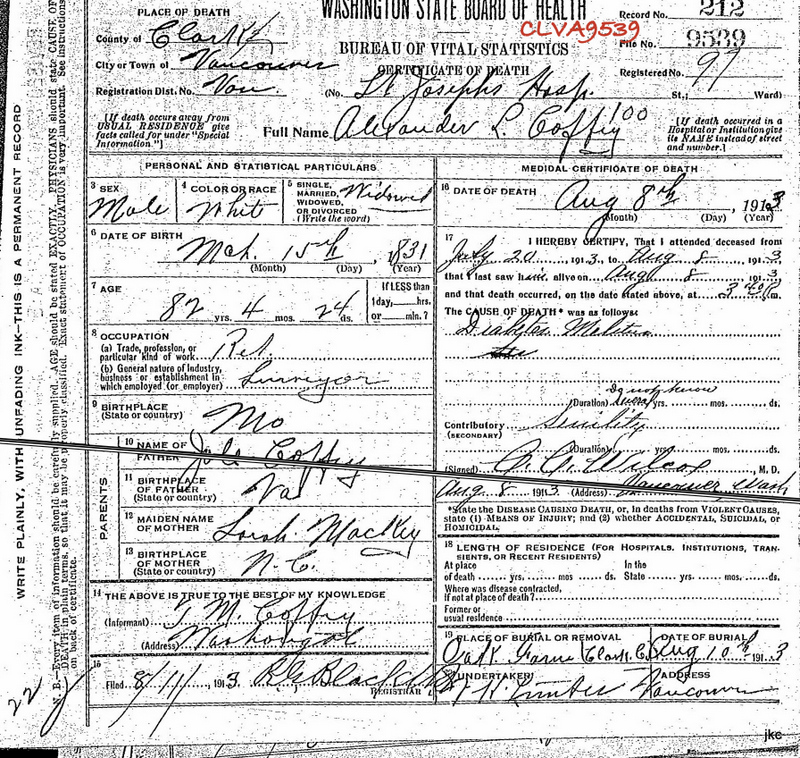 PLACE OF DEATH
WASHINGTON STATE BOARD OF HEALTH
Record No. 212
CLVA9539
County of Clark
BUREAU OF VITAL STATISTICS
File No. 9539
City or Town of Vancouver
CERTIFICATE OF DEATH
Registered No. 97
Registration Dist. No. Van
(No. St Josephs Hosp. St.; Ward)
[If death occurs away from USUAL RESIDENCE give facts called for under "Special Information."]
Full Name Alexander L. Coffey 100
[If death occurred in a Hospital or Institution give its NAME instead of street and number.]
PERSONAL AND STATISTICAL PARTICULARS
3 SEX
Male
4 COLOR OR RACE
White
5 SINGLE, MARRIED, WIDOWED, OR DIVORCED (Write the word)
Widowed
6 DATE OF BIRTH
Mch. 15th, 1831
(Month) (Day) (Year)
7 AGE
82 yrs. 4 mos. 24 ds.
If LESS than 1 day, hrs. or min.?
8 OCCUPATION
(a) Trade, profession, or particular kind of work Ret.
(b) General nature of industry, business or establishment in which employed (or employer) Surveyor
9 BIRTHPLACE
(State or country) Mo
PARENTS
10 NAME OF FATHER Coffey
11 BIRTHPLACE OF FATHER
(State or country)
12 MAIDEN NAME OF MOTHER Sarah Mackey
13 BIRTHPLACE OF MOTHER
(State or country) N.C.
14 THE ABOVE IS TRUE TO THE BEST OF MY KNOWLEDGE
(Informant) T. M. Coffey
(Address) Washougal
15
Filed 8/11/ 1913
REGISTRAR
MEDICAL CERTIFICATE OF DEATH
16 DATE OF DEATH
Aug 8th, 1913
(Month) (Day) (Year)
17 I HEREBY CERTIFY, That I attended deceased from
July 20 1913, to Aug 8 1913
that I last saw him alive on Aug 8 1913
and that death occurred, on the date stated above, at 3 40 P m.
The CAUSE OF DEATH* was as follows:
Diabetes
Do not know
(Duration) yrs. mos. ds.
Contributory Senility
(SECONDARY)
(Duration) yrs. mos. ds.
(Signed) Wilcox, M. D.
Aug 8 1913 (Address) Vancouver Wash
*State the DISEASE CAUSING DEATH, or, in deaths from VIOLENT CAUSES,
state (1) MEANS OF INJURY; and (2) whether ACCIDENTAL, SUICIDAL, or
HOMICIDAL.
18 LENGTH OF RESIDENCE (FOR HOSPITALS, INSTITUTIONS, TRANSIENTS, OR RECENT RESIDENTS)
At place In the
of death yrs. mos ds. State yrs. mos. ds.
Where was disease contracted,
If not at place of death?
Former or
usual residence
19 PLACE OF BURIAL OR REMOVAL
Clark Co
DATE OF BURIAL
Aug 10th 1913
20 UNDERTAKER
ADDRESS
Vancouver
WRITE PLAINLY, WITH UNFADING INK—THIS IS A PERMANENT RECORD
N. B.—Every item of information should be carefully supplied. AGE should be stated EXACTLY. PHYSICIANS should state CAUSE OF
DEATH in plain terms, so that it may be properly classified. Exact statement of OCCUPATION is very important. See instructions
on back of certificate.
22
jkc